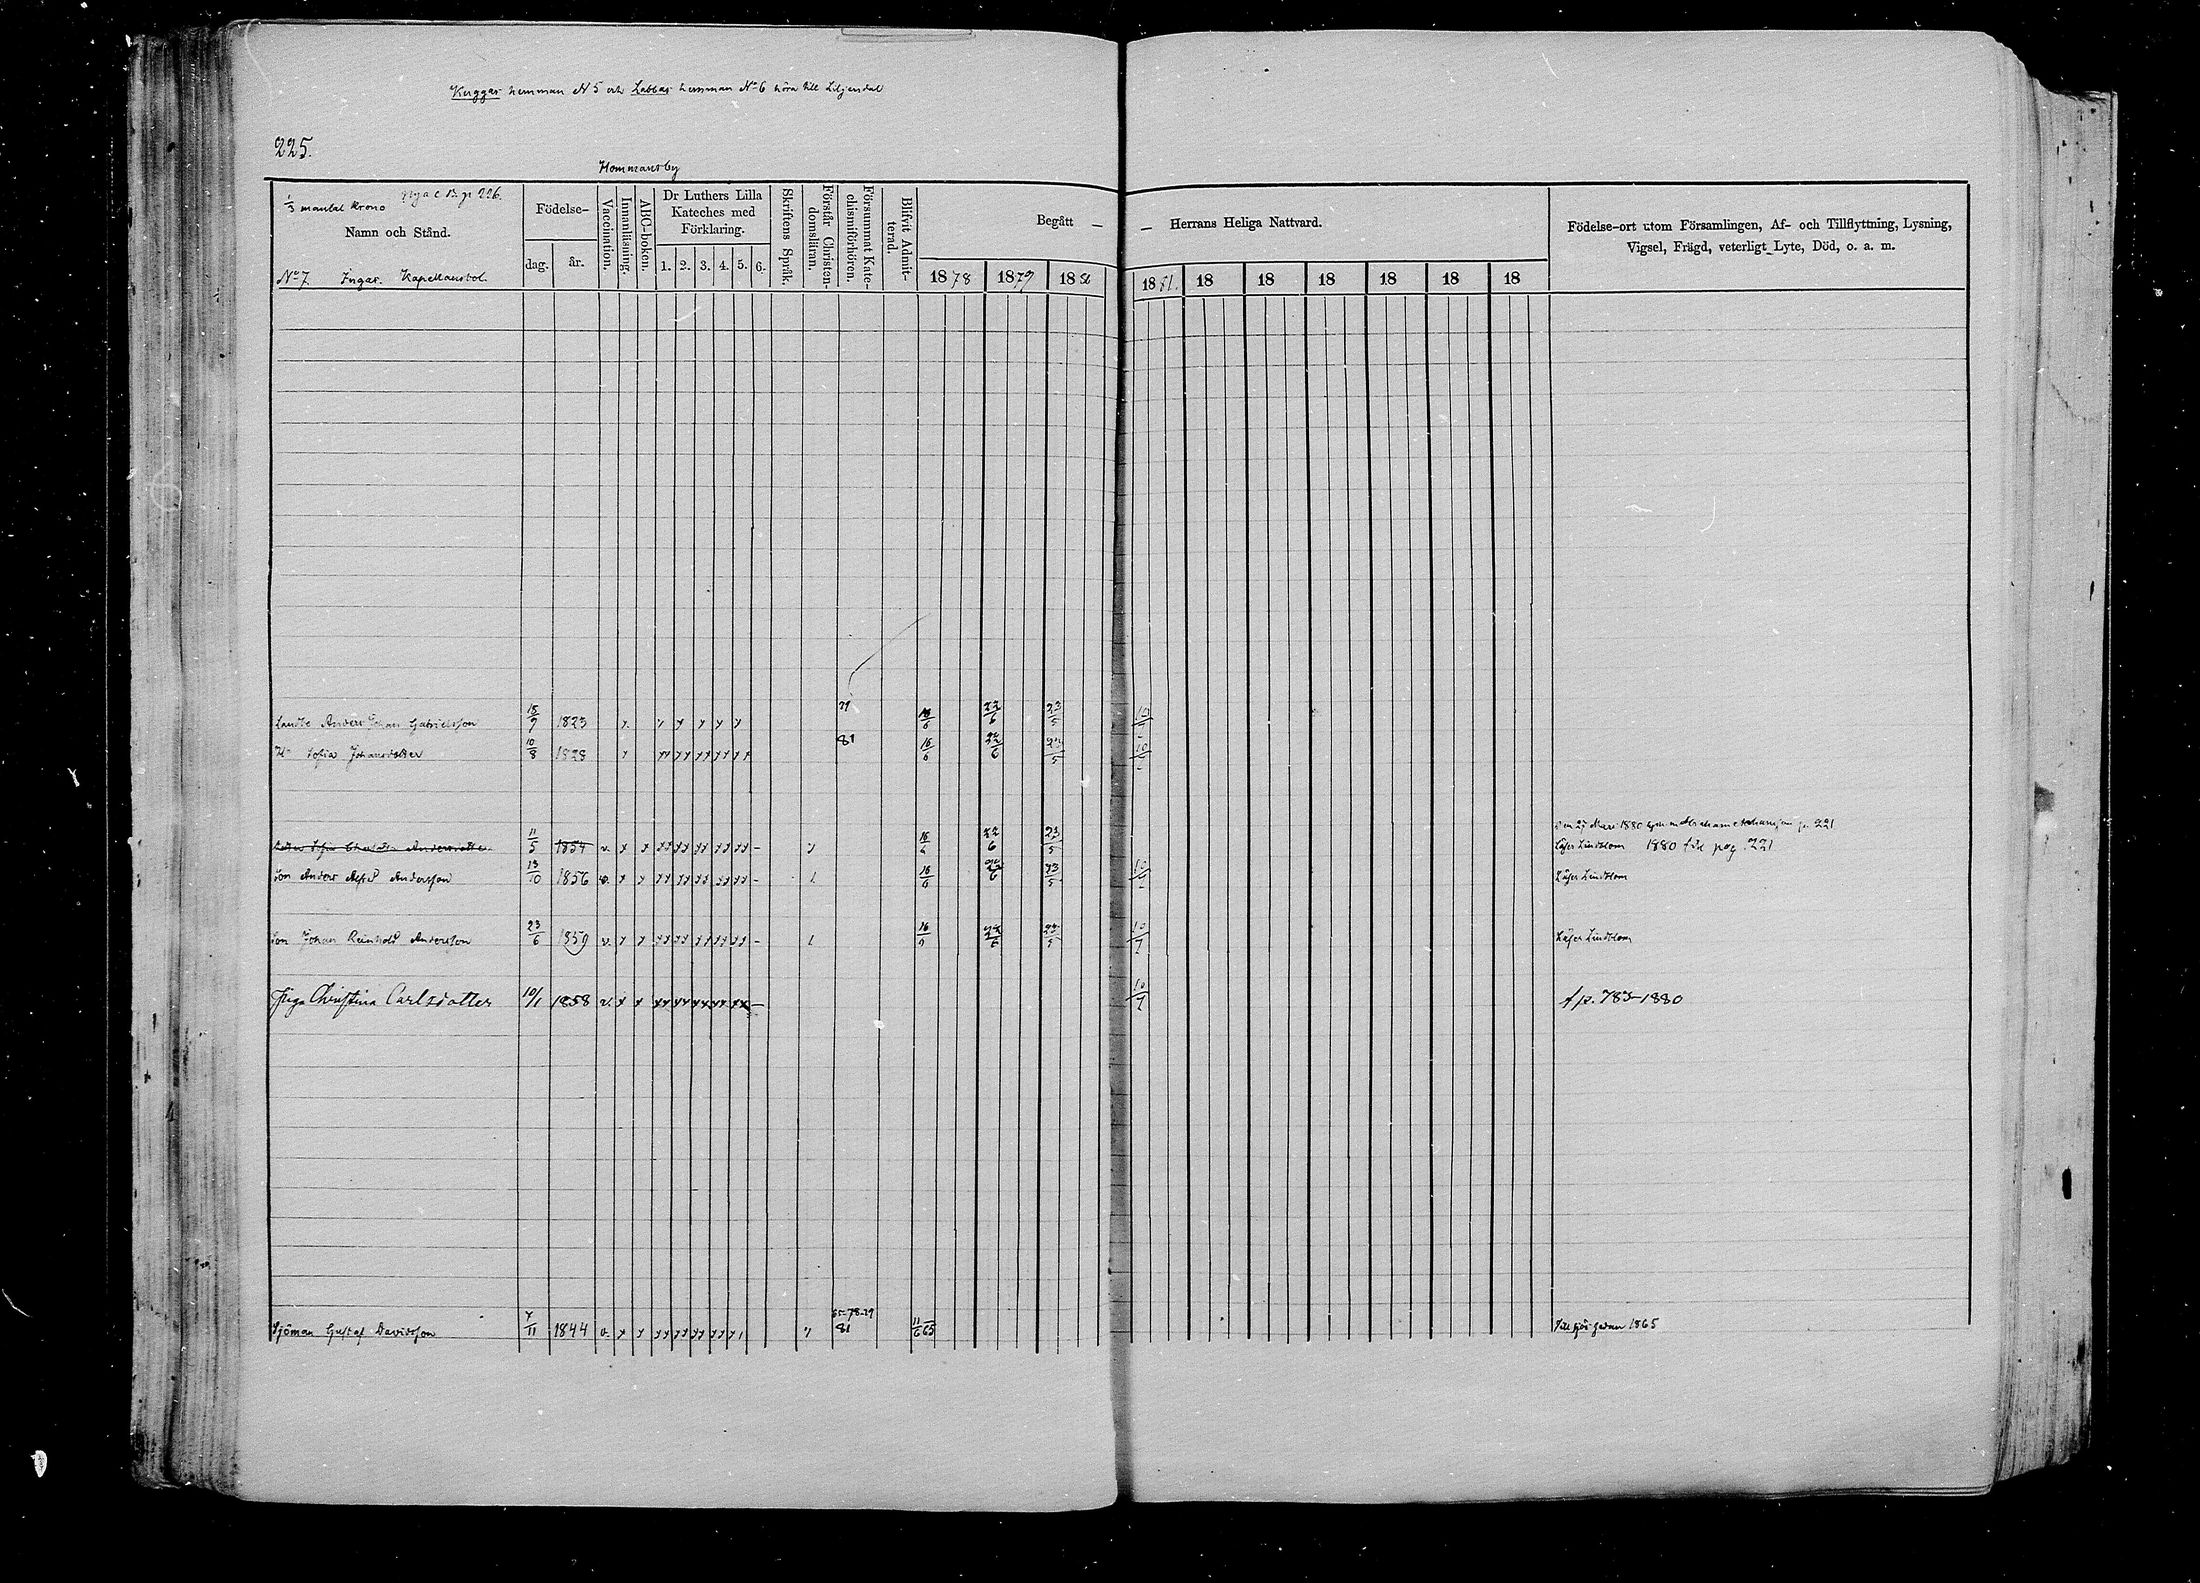 Kuggas hemman N 5 och Labbas hemman No 6 höra till Liljendal
225.
Hommansby
1/3 mantal Krono nya C B. p 226.
Namn och Stånd.
No 7. Ingas. Kapellansbol.
Födelse-
dag. år.
Vaccination.
Innanläsning.
ABC-boken.
Dr Luthers Lilla Kateches med Förklaring.
1. 2. 3. 4. 5. 6.
Skriftens Språk.
Förstår Christendomsläran.
Försummat Katechismiförhören.
Blifvit Admitterad.
Begått — — Herrans Heliga Nattvard.
1878 1879 1880 1881. 18 18 18 18 18 18
Födelse-ort utom Församlingen, Af- och Tillflyttning, Lysning,
Vigsel, Frägd, veterligt Lyte, Död, o. a. m.
Landb Anders Johan Gabrielsson 18/9 1823 x. x x x x x 16/6 22/6 23/5 10/
Hu Sofia Johansdotter 10/8 1828 x xx xx xx xx xx 81 16/6 22/6 23/5 10/
den 27 Mars 1880 p. 221
Sofia Andersdotter 11/5 1854 v. x x xx xx xx xx xx – 16/6 22/6 23/5 Läser Lindblom 1880 till pag. 221
Son Anders Alfred Andersson 13/10 1856 v. x x xx xx xx xx xx – 16/6 22/6 23/5 10/ Läser Lindblom
Son Johan Reinhold Andersson 23/6 1859 v. x x xx xx xx xx xx – 16/6 22/6 23/5 10/ Läser Lindblom
Piga Christina Carlsdotter 10/1 1858 v. x x xx xx xx xx xx – 10/ f p. 783–1880
65–78–79
Sjöman Gustaf Davidsson 7/11 1844 v. x x xx xx xx xx 81 11/6 65 Till sjös sedan 1865